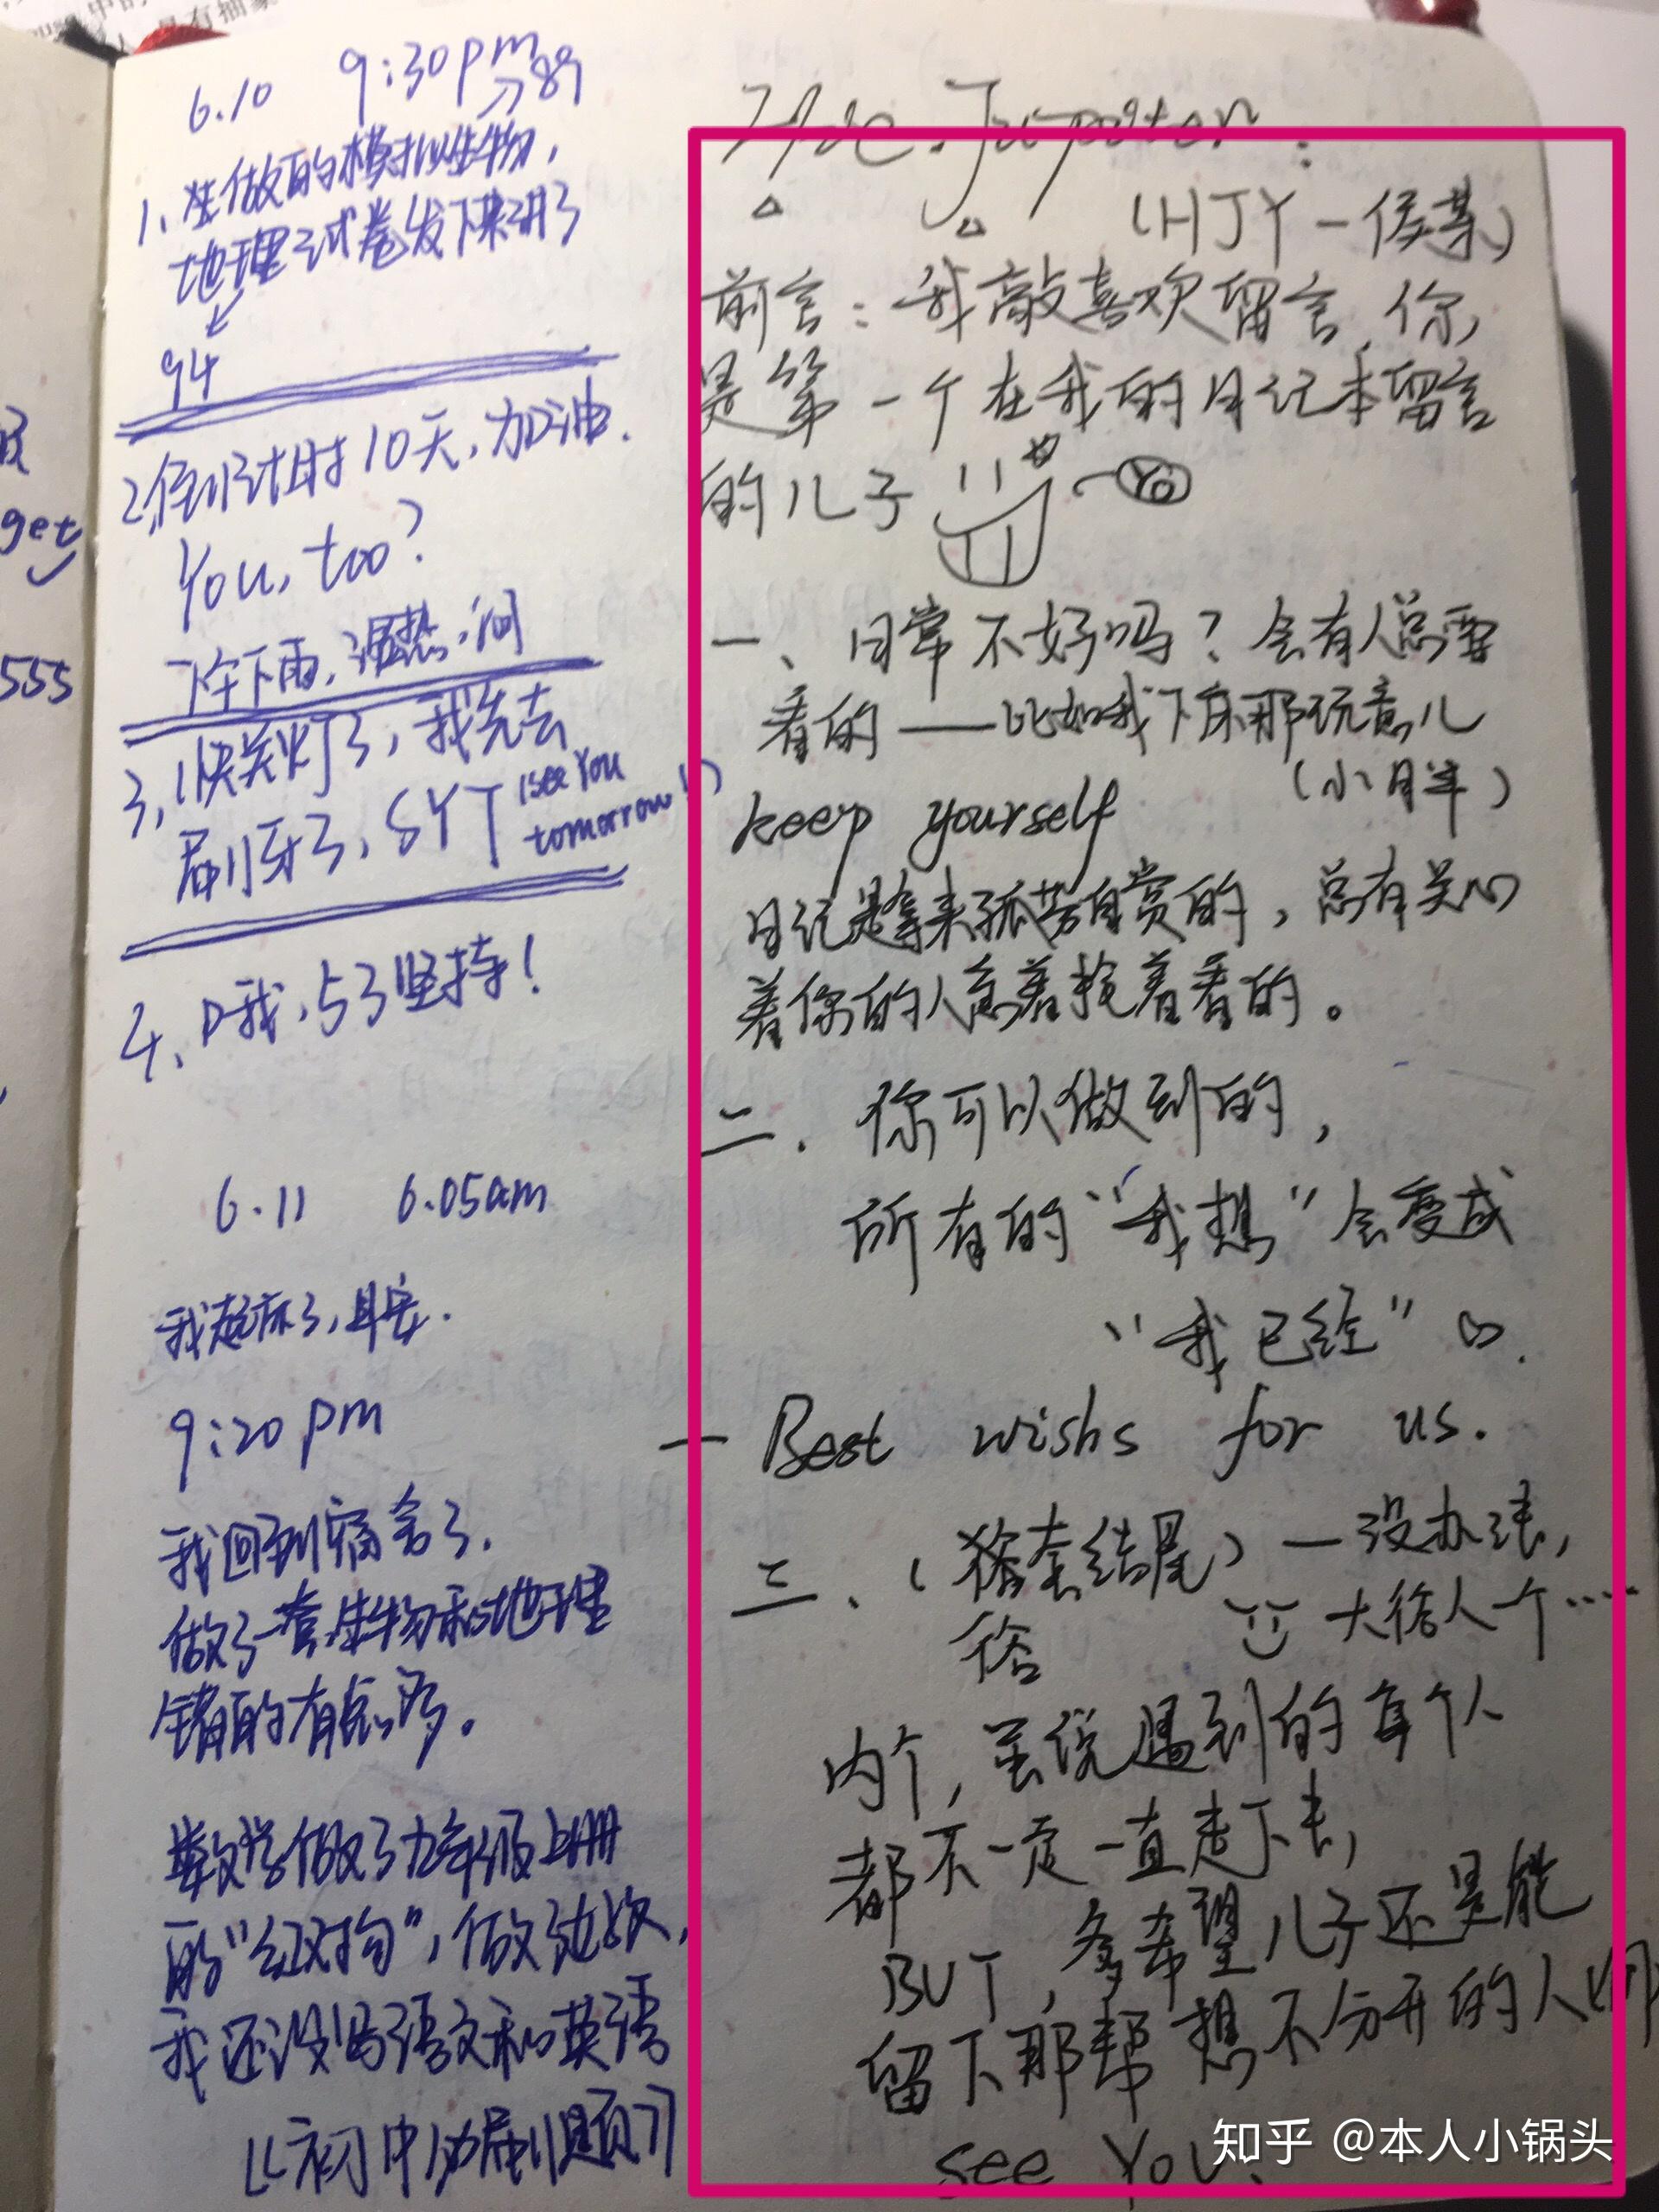 6.10 9:30pm
→89
1、昨做的模拟生物,
地理试卷发下来讲了
94
2、倒计时10天,加油.
You, too?
下午下雨,湿热,闷
3、快关灯了,我先去
刷牙了,SYT (see You
tomorrow!)
4、哦,53坚持!
6.11 6.05am
我起床了,早安.
9:20pm
我回到宿舍了.
做了一套生物和地理
错的有点多。
数学做了九年级上册
的“红对勾”,做
我还没写语文和英语
《初中必刷题》
get
555
Jupiter:
(HJY-侯某)
前言:我敲喜欢留言,你
是第一个在我的日记本留言
的儿子
Yo
一、日常不好吗?会有人总要
看的——比如我下床那玩意儿
(小胖)
keep yourself
日记是拿来孤芳自赏的,总有关心
着你的人急着抢着看的。
二.你可以做到的,
所有的“我想”会变成
“我已经”
—Best wishs for us.
三、(俗套结尾)—没办法,
俗 大俗人一个……
内个,虽说遇到的每个人
都不一定一直走下去,
BUT,多希望儿子还是能
留下那帮想不分开的人
see You.
知乎 @本人小锅头